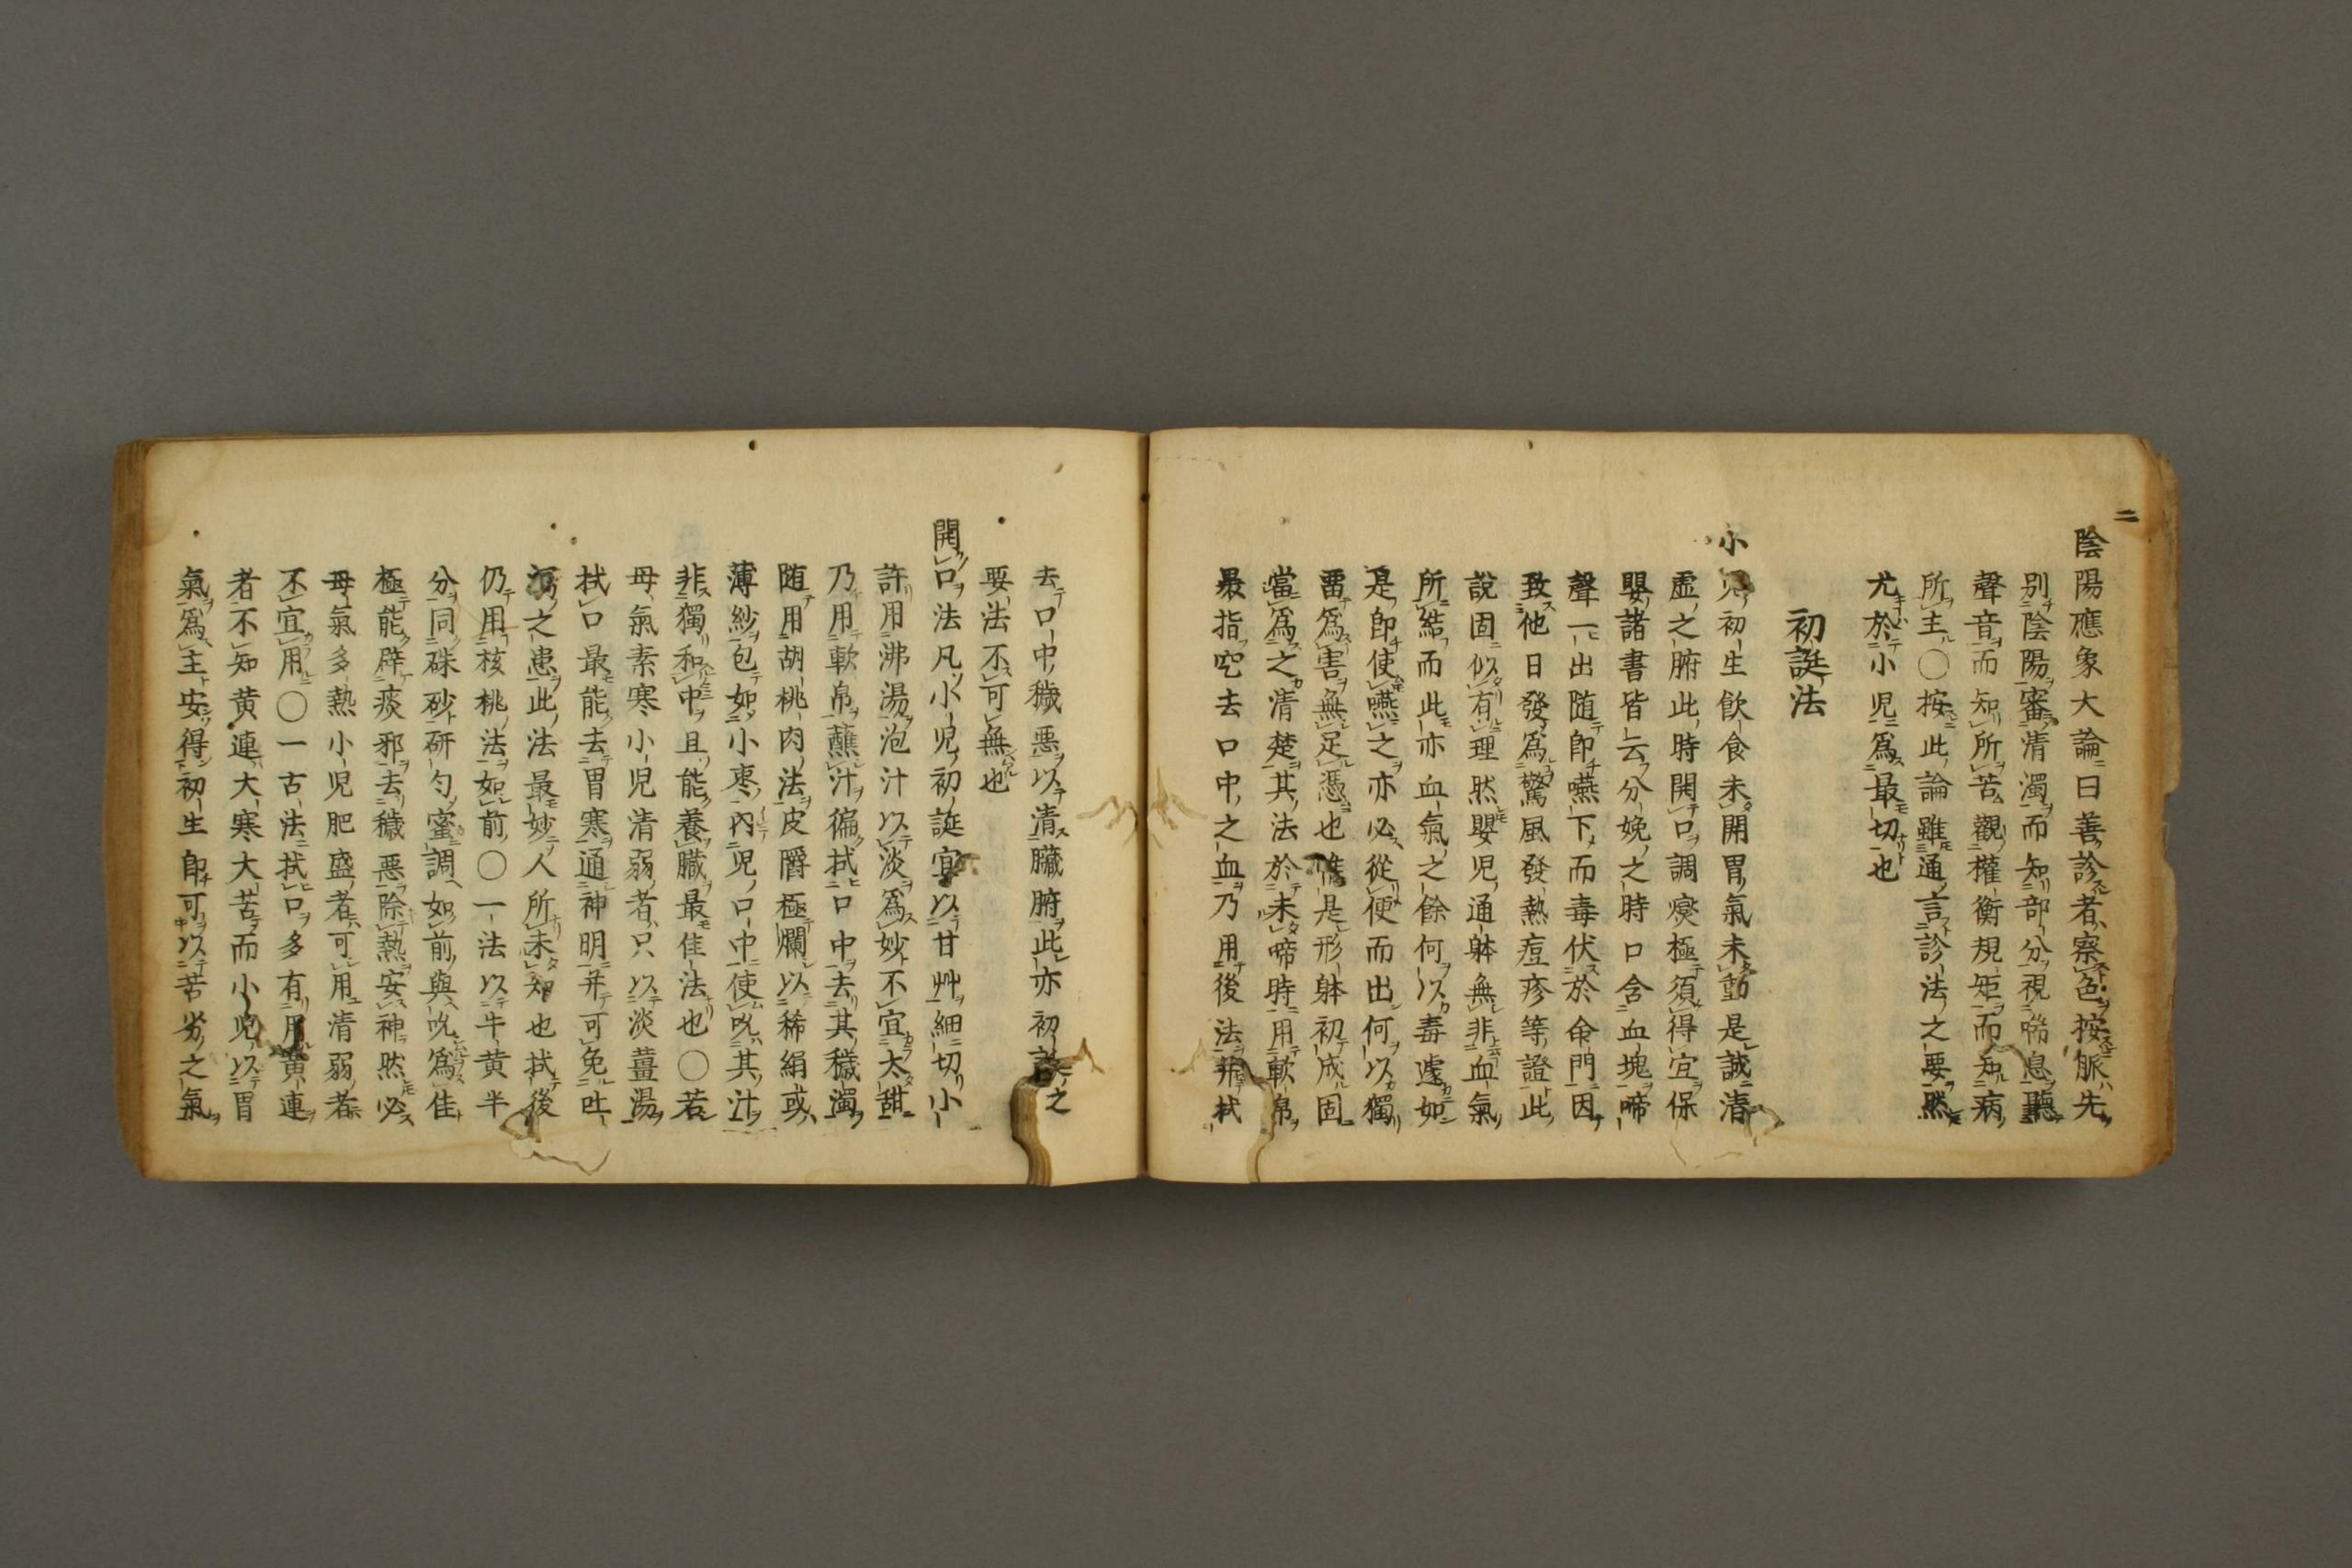 二
陰陽應象大論曰善診者察色按脈先
別陰陽審清濁而知部分視喘息聽
聲音而知所苦觀權衡規矩而知病
所主〇按此論雖通言診法之要然
尤於小児爲最切也
初誕法
小児初生飲食未開胃氣未動是誠清
虛之腑此時開口調爕極須得宜保
嬰諸書皆云分娩之時口含血塊啼
聲一出随即嚥下而毒伏於命門因
致他日發爲驚風發熱痘疹等證此
說固似有理然嬰児通躰無非血氣
所結而此亦血氣之餘何以毒遽如
是即使嚥之亦必從便而出何以獨
畱爲害無足憑也惟是形躰初成固
當爲之清楚其法於未啼時用軟帛
裹指挖去口中之血乃用後法葬拭
去口中穢悪以清臓腑此亦初誕之
要法不可無也
開口法凡小児初誕宜以甘艸細切小
許用沸湯泡汁以淡爲妙不宜太甜
乃用軟帛蘸汁徧拭口中去其穢濁
随用胡桃肉法皮嚼極爛以稀絹或
薄紗包如小枣內児口中使吮其汁
非獨和中且能養臓最佳法也〇若
母氣素寒小児清弱者只以淡薑湯
拭口最能去胃寒通神明幷可免吐
瀉之患此法最妙人所未知也拭後
仍用核桃法如前〇一法以牛黄半
分同硃砂研勺蜜調如前與吮爲佳
極能辟痰邪去穢悪除熱安神然必
母氣多熱小児肥盛者可用清弱者
不宜用〇一古法拭口多有用黄連
者不知黄連大寒大苦而小児以胃
氣爲主安得初生即可以苦劣之氣